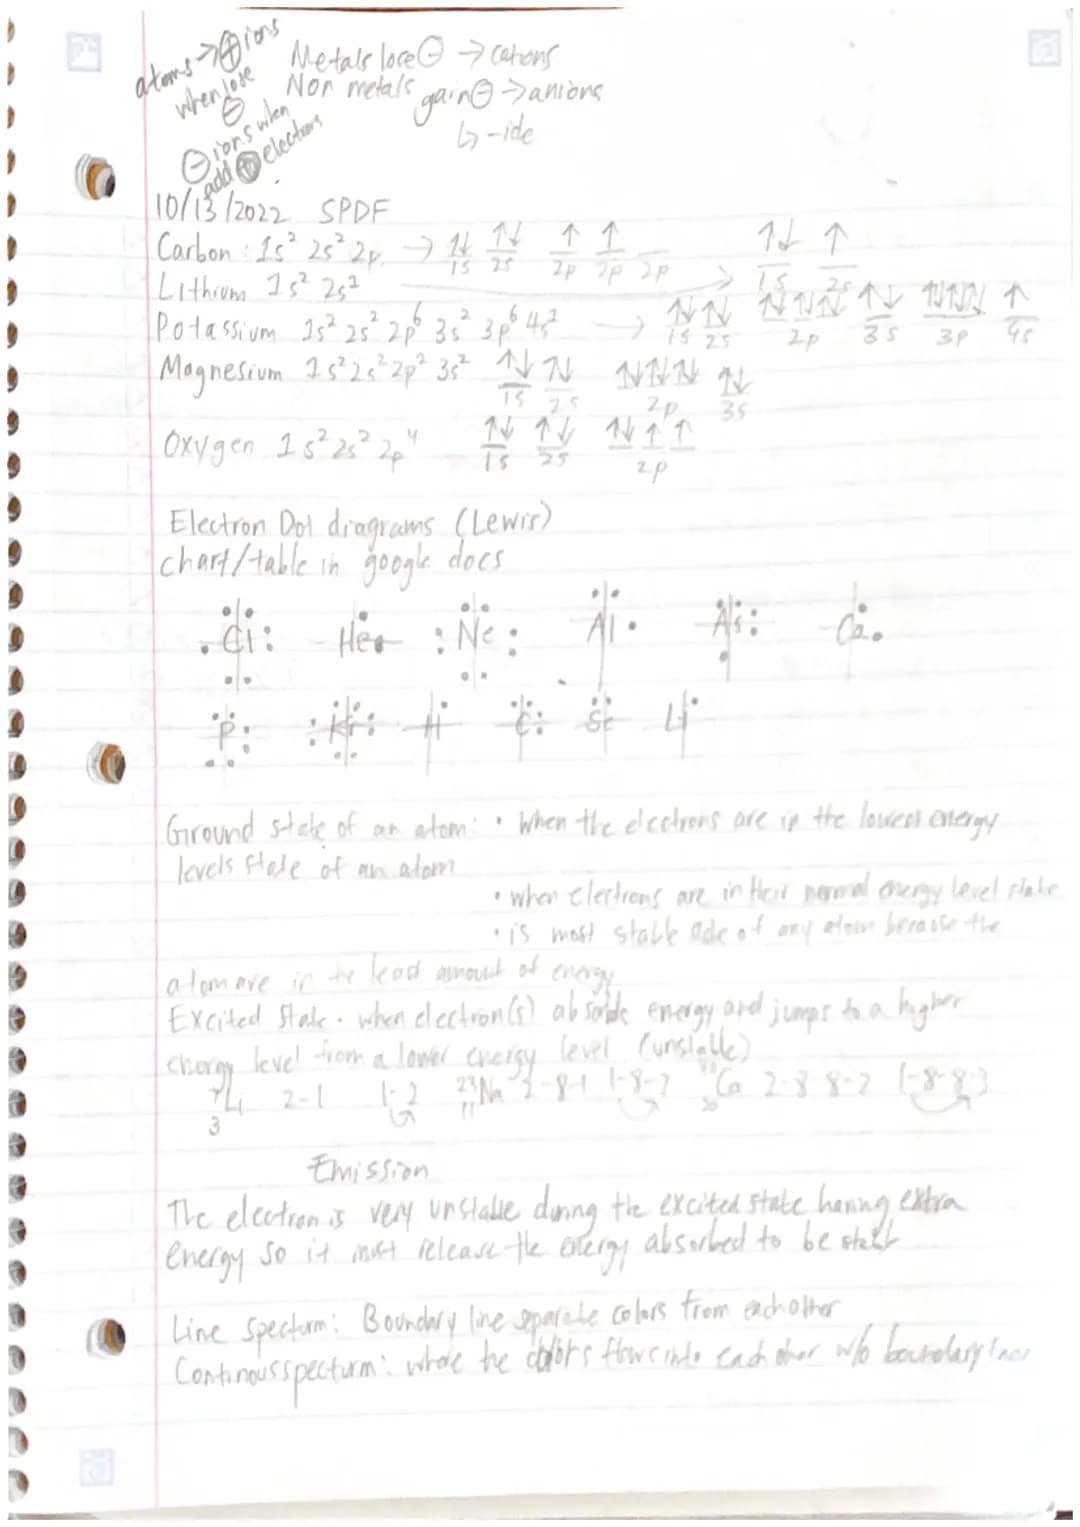 atoms → ⊕ ions
when lose
⊖
⊖ ions when
add electrons
Metals lose ⊖ → cations
Non metals gain ⊖ → anions
↳ -ide
10/13/2022 SPDF
Carbon : 1s² 2s² 2p → ↑↓ ↑↓ ↑ ↑
1s 2s 2p 2p 2p
Lithium 1s² 2s¹ → ↑↓ ↑
1s 2s
Potassium 1s² 2s² 2p⁶ 3s² 3p⁶ 4s¹ → ↑↓ ↑↓ ↑↓↑↓↑↓ ↑↓ ↑↓↑↓↑↓ ↑
1s 2s 2p 3s 3p 4s
Magnesium 1s² 2s² 2p² 3s² ↑↓ ↑↓ ↑↓↑↓↑↓ ↑↓
1s 2s 2p 3s
Oxygen 1s² 2s² 2p⁴ ↑↓ ↑↓ ↑↓ ↑ ↑
1s 2s 2p
Electron Dot diagrams (Lewis)
chart/table in google docs
Cl He Ne Al As Ca
P Kr H C Se Li
Ground state of an atom: • when the electrons are in the lowest energy
levels state of an atom
• when electrons are in their normal energy level state
• is most stable of any atom because the
atom are in the least amount of energy
Excited state • when electron(s) absorbs energy and jumps to a higher
energy level from a lower energy level (unstable)
⁷₃Li 2-1 1-2 ²³₁₁Na 2-8-1 1-8-2 ⁴⁰₂₀Ca 2-8 8-2 1-8-8-3
Emission
The electron is very unstable during the excited state having extra
energy so it must release the energy absorbed to be stable
Line specturm: Boundary line separate colors from each other
Continous specturm: where the colors flows into each other w/o boundary lines